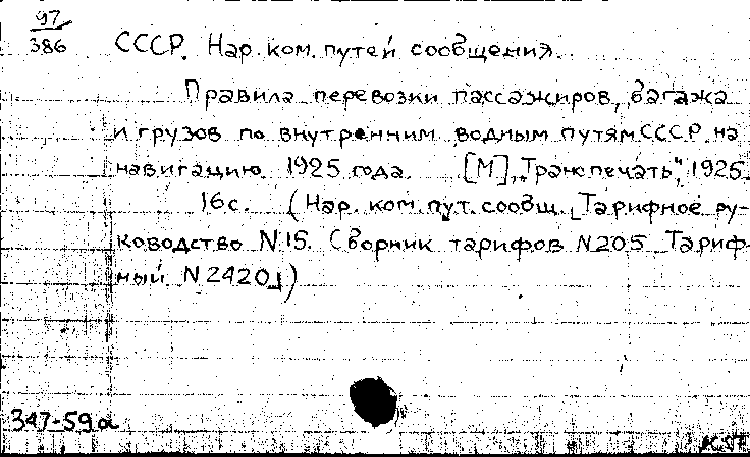 97
386
СССР. Нар. ком. путей сообщения.
Правила перевозки пассажиров, багажа
и грузов по внутренним водным путям СССР на
навигацию 1925 года. [М], "Транспечать", 1925.
16 с. (Нар. ком. пут. сообщ. [Тарифное ру-
ководство N 15. Сборник тарифов N 205 Тариф-
ный N 2420])
347-59а